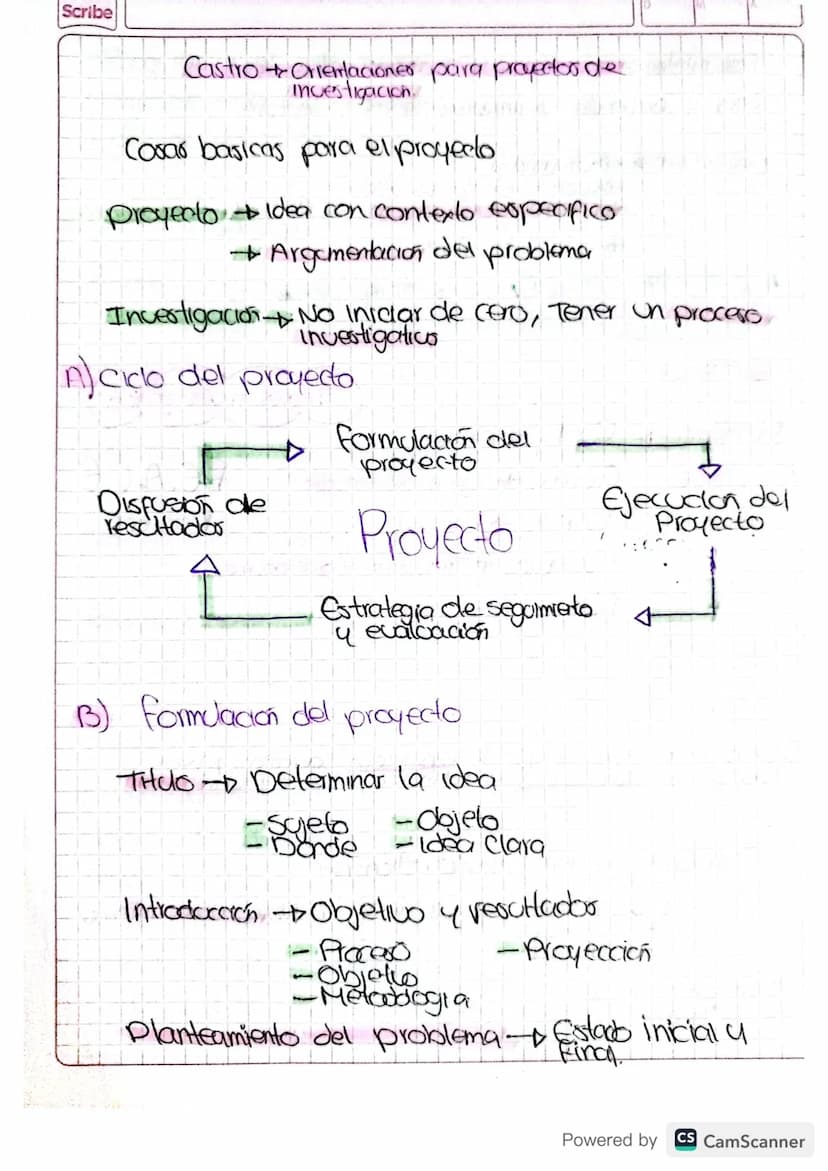 Scribe
Castro → Orientaciones para proyectos de
investigación.
Cosas basicas para el proyecto
Proyecto → Idea con contexto especifico
→ Argumentación del problema
Investigación → No iniciar de cero, Tener un proceso
investigativo
A) Ciclo del proyecto
Formulación del
proyecto
Disfusión de
resultados
Ejecución del
Proyecto
Proyecto
Estrategia de seguimiento
y evaluación
B) Formulación del proyecto
Titulo → Determinar la idea
- Sujeto - Objeto
- Donde - Idea Clara
Introducción → Objetivo y resultados
- Proceso - Proyección
- Objetivo
- Metodologia
Planteamiento del problema → Estado inicial y
Final.
Powered by CS CamScanner